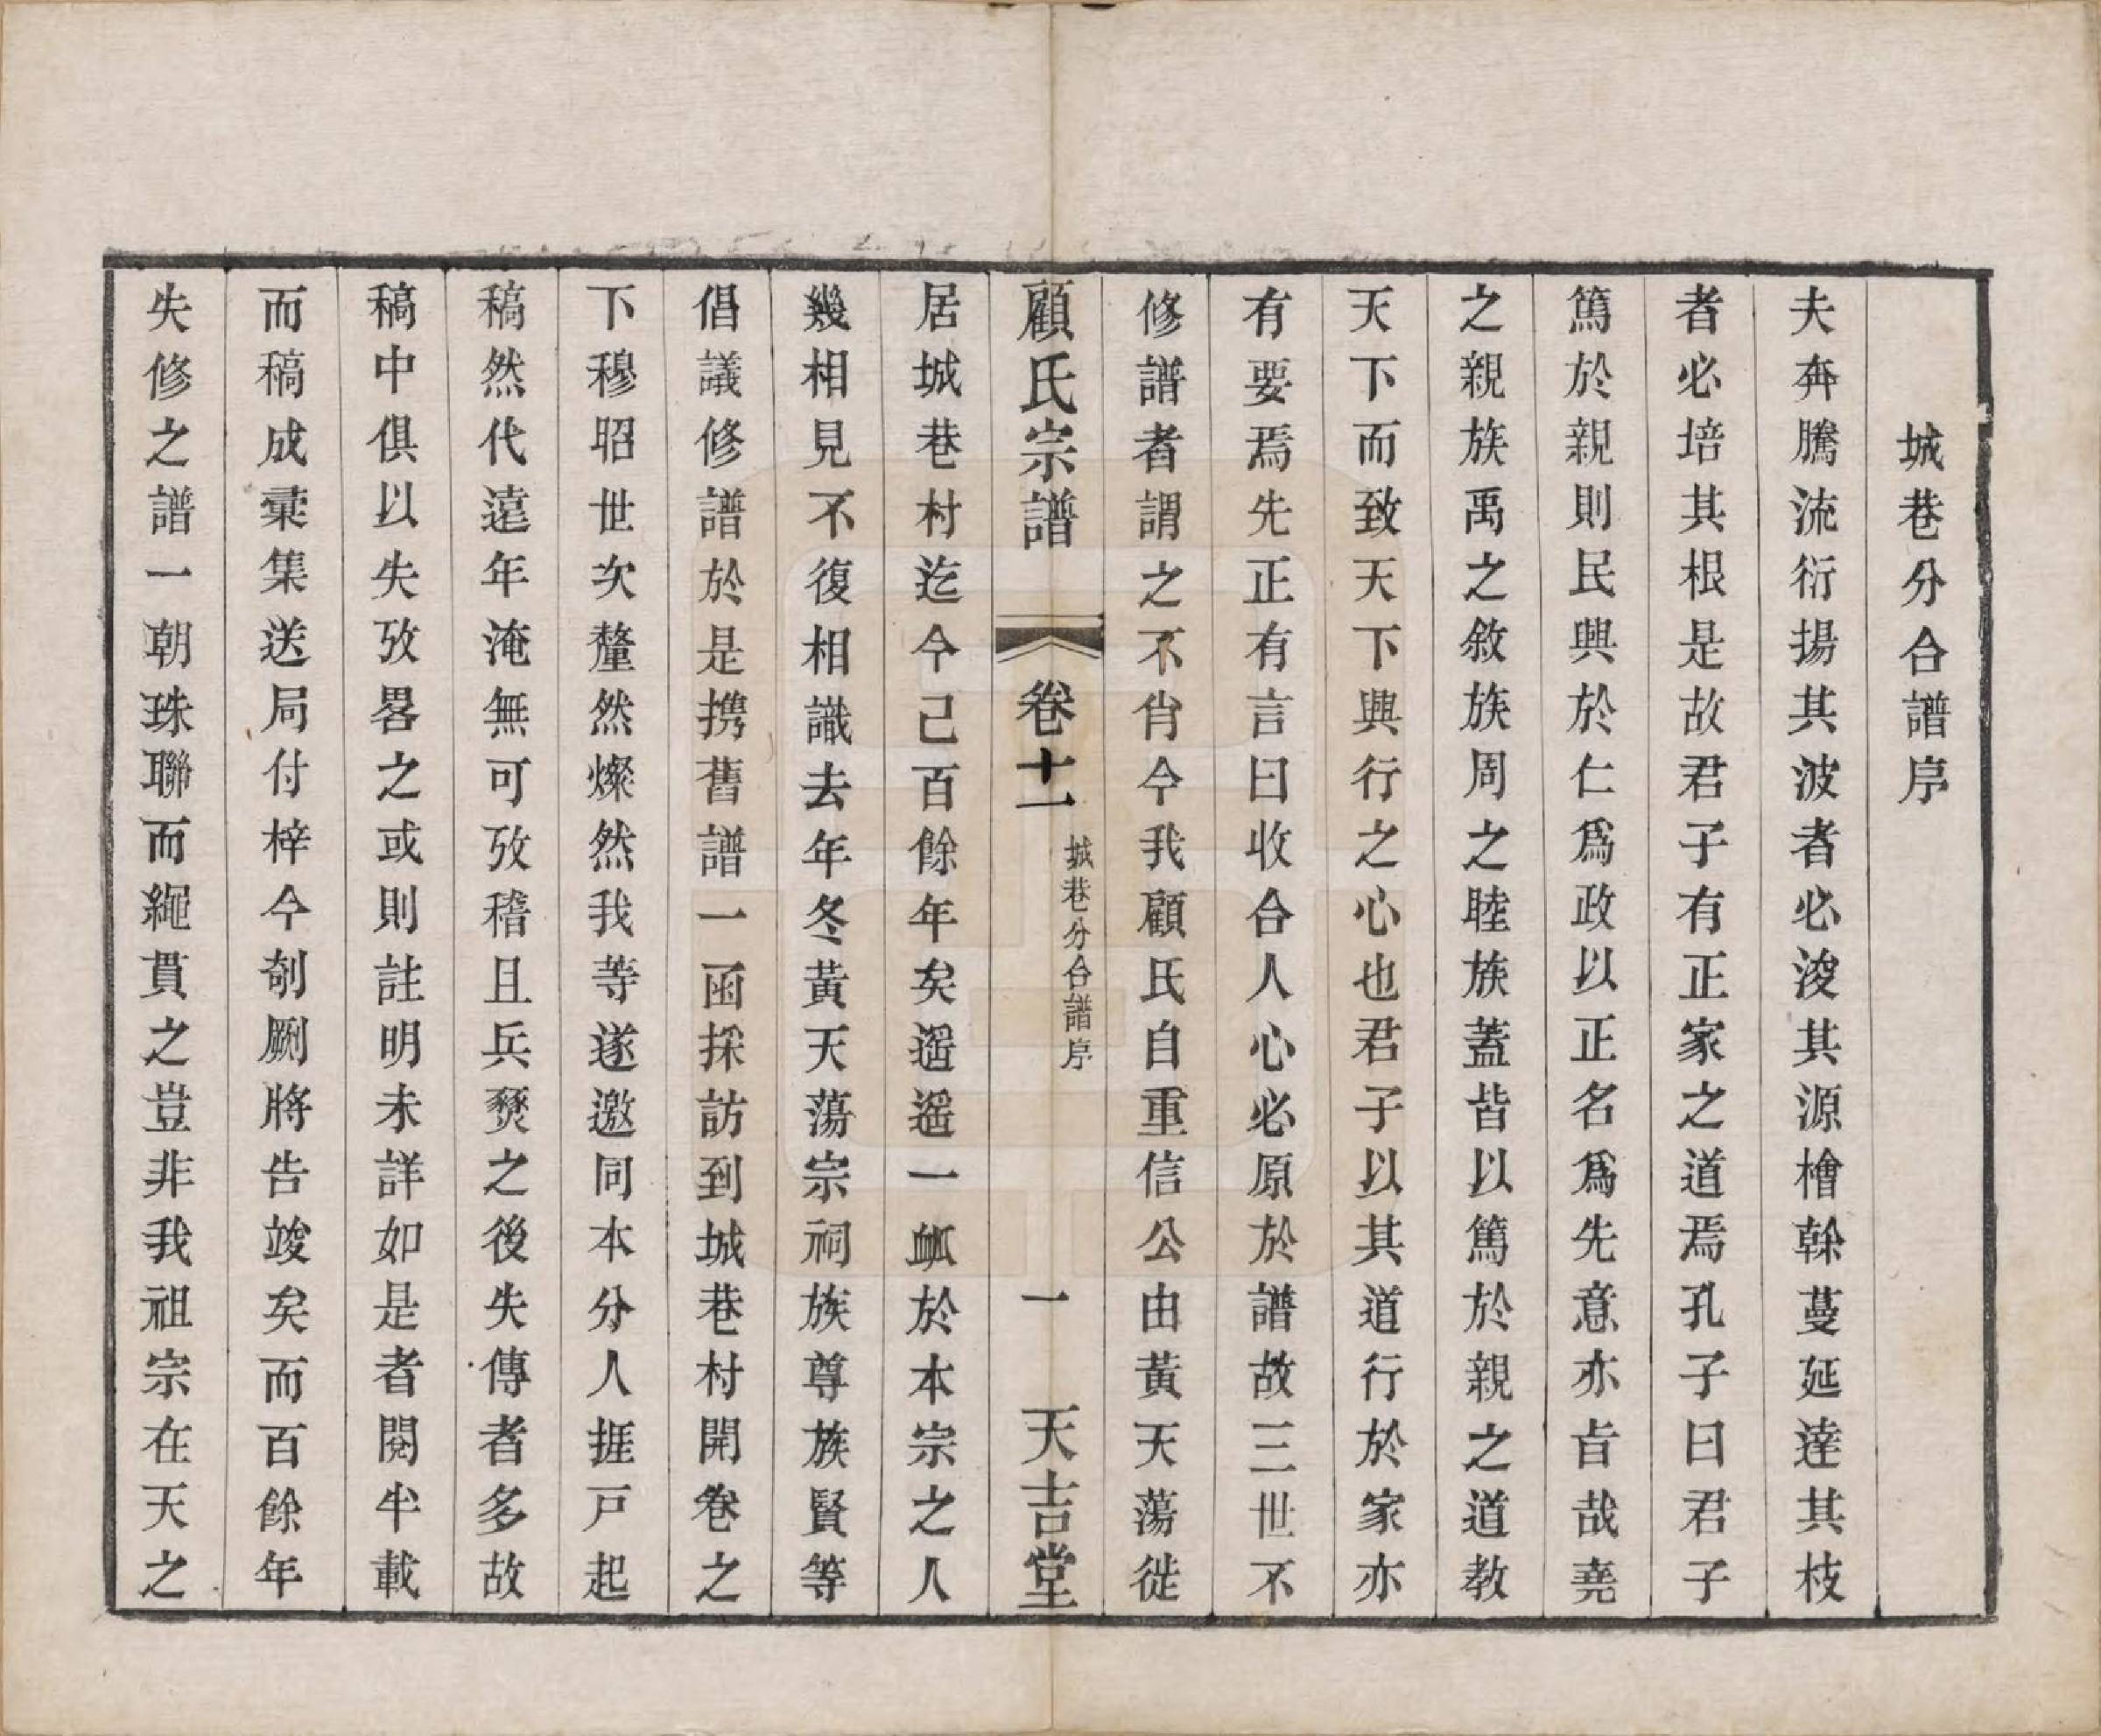 城巷分合譜序
夫奔騰流衍揚其波者必浚其源檜榦蔓延達其枝
者必培其根是故君子有正家之道焉孔子曰君子
篤於親則民興於仁爲政以正名爲先意亦㫖哉堯
之親族禹之敘族周之睦族蓋皆以篤於親之道教
天下而致天下興行之心也君子以其道行於家亦
有要焉先正有言曰收合人心必原於譜故三世不
修譜者謂之不肖今我顧氏自重信公由黃天蕩徙
顧氏宗譜 卷十一 城巷分合譜序 一 天吉堂
居城巷村迄今己百餘年矣遥遥一䘏於本宗之人
幾相見不復相識去年冬黃天蕩宗祠族尊族賢等
倡議修譜於是携舊譜一函採訪到城巷村開卷之
下穆昭世次釐然燦然我等遂邀同本分人捱戸起
稿然代遠年淹無可攷稽且兵燹之後失傳者多故
稿中俱以失攷畧之或則註明未詳如是者閱半載
而稿成彚集送局付梓今剞劂將告竣矣而百餘年
失修之譜一朝珠聯而繩貫之豈非我祖宗在天之